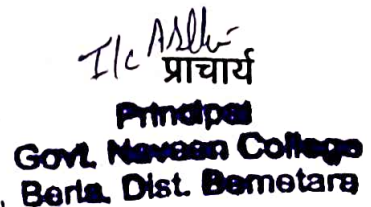 I/c
प्राचार्य
Principal
Govt. Naveen College
Berla, Dist. Bemetara